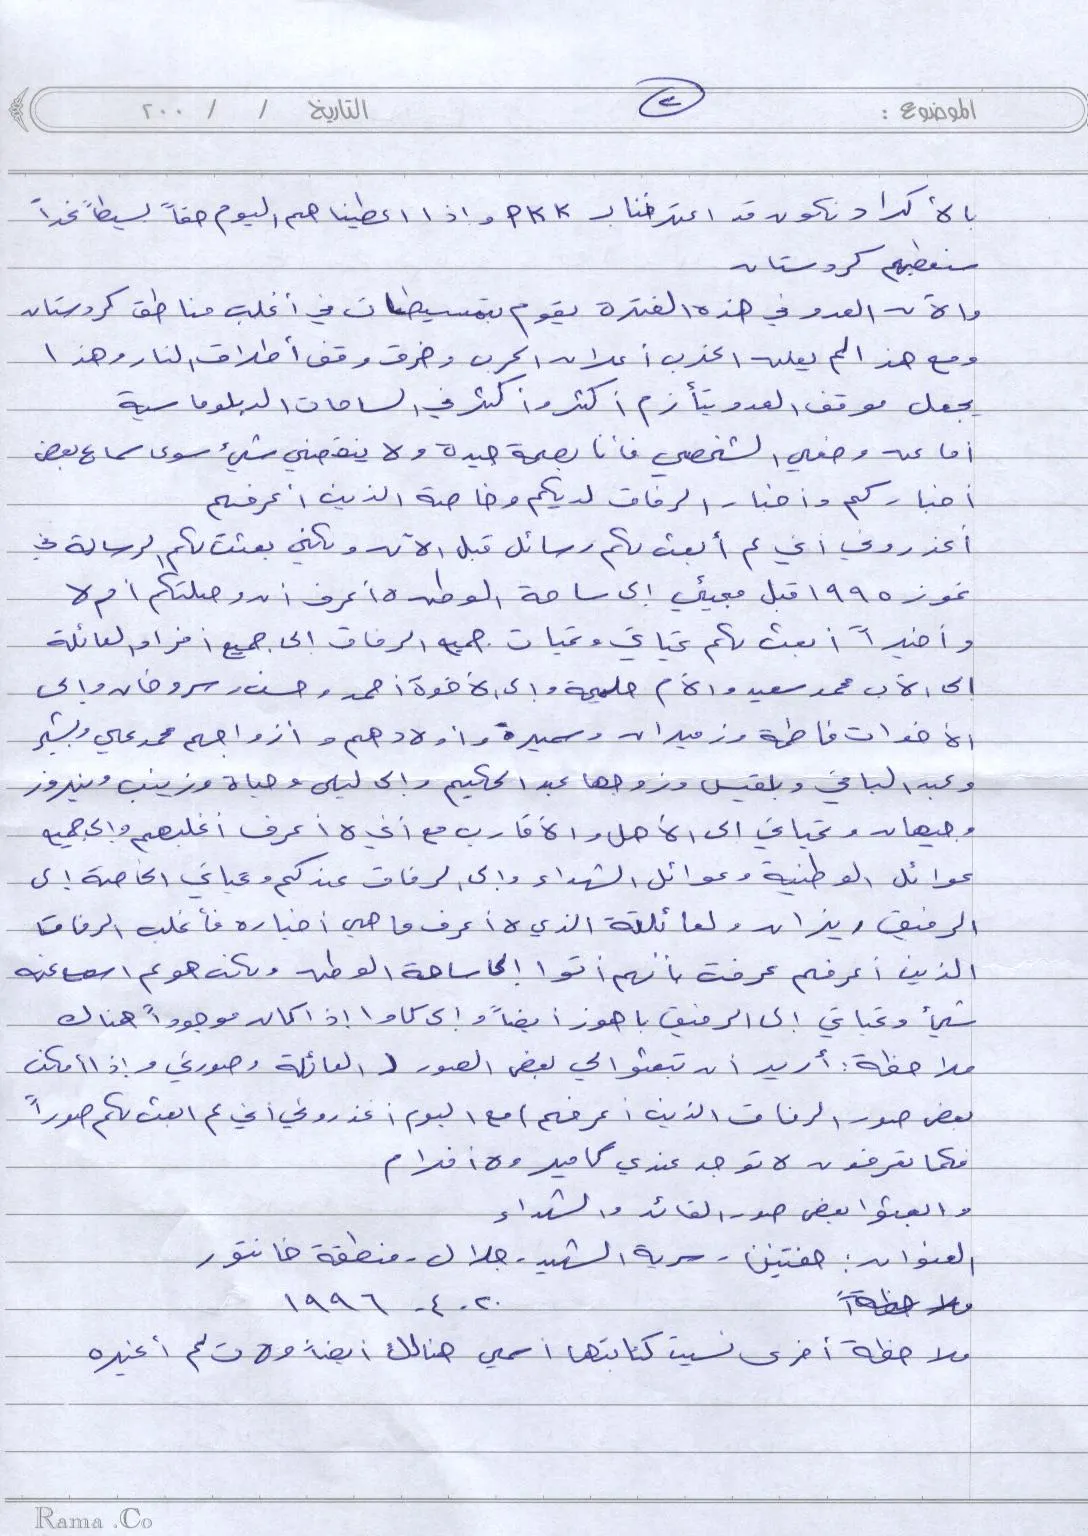 الموضوع : ٤ التاريخ / / ٢٠٠
بالأكراد نكون قد اعترفنا بـ PKK وإذا اعطيناهم اليوم حقاً بسيطاً غداً
سنعطيهم كردستان
والآن العدو في هذه الفترة يقوم بتمشيطات في أغلب مناطق كردستان
ومع هذا لم يعلن الحزب أعلان الحرب وخرق وقف أطلاق النار وهذا
يجعل موقف العدو يتأزم أكثر وأكثر في الساحات الدبلوماسية
أما عن وضعي الشخصي فأنا بصحة جيدة ولا ينقصني شيء سوى سماع بعض
أخباركم وأخبار الرفاق لديكم وخاصة الذين أعرفهم
أعذروني أني لم أبعث لكم رسائل قبل الآن ولكني بعثت لكم الرسالة في
تموز ١٩٩٥ قبل مجيئي إلى ساحة الوطن لا أعرف أن وصلتكم أم لا
وأخيراً أبعث لكم تحياتي وتحيات جميع الرفاق إلى جميع أفراد العائلة
إلى الأب محمد سعيد والأم حليمة وإلى الأخوة أحمد وحسن وسروخان وإلى
الأخوات فاطمة وزميران وسميرة وأولادهم وأزواجهم محمد علي وبشير
وعبد الباقي وبلقيس وزوجها عبد الحكيم وإلى ليلى وحياة وزينب ونيروز
وجيهان وتحياتي إلى الأهل والأقارب مع أني لا أعرف أغلبهم وإلى جميع
عوائل الوطنية وعوائل الشهداء وإلى الرفاق عندكم وتحياتي الخاصة إلى
الرفيق ريزان ولعائلته الذي لا أعرف ما هي أخباره فأغلب الرفاق
الذين أعرفهم عرفت بأنهم أتوا إلى ساحة الوطن ولكن هو لم اسمع عنه
شيء وتحياتي إلى الرفيق باهوز أيضاً وإلى كاوا إذا كان موجوداً هناك
ملاحظة : أريد أن تبعثوا لي بعض الصور ( العائلة وصورتي وإذا أمكن
بعض صور الرفاق الذين أعرفهم ) مع اليوم أعذروني أني لم ابعث لكم صوراً
فكما تعرفون لا توجد عندي كاميرا ولا أفلام
وابعثوا بعض صور القائد والشهداء
العنوان : هفتنين - سرية الشهيد - جلال - منطقة خانتور
٢٠ - ٤ - ١٩٩٦
ملاحظة أخرى نسيت كتابتها أسمي هنالك أيضاً ولات لم أغيره
Rama .Co